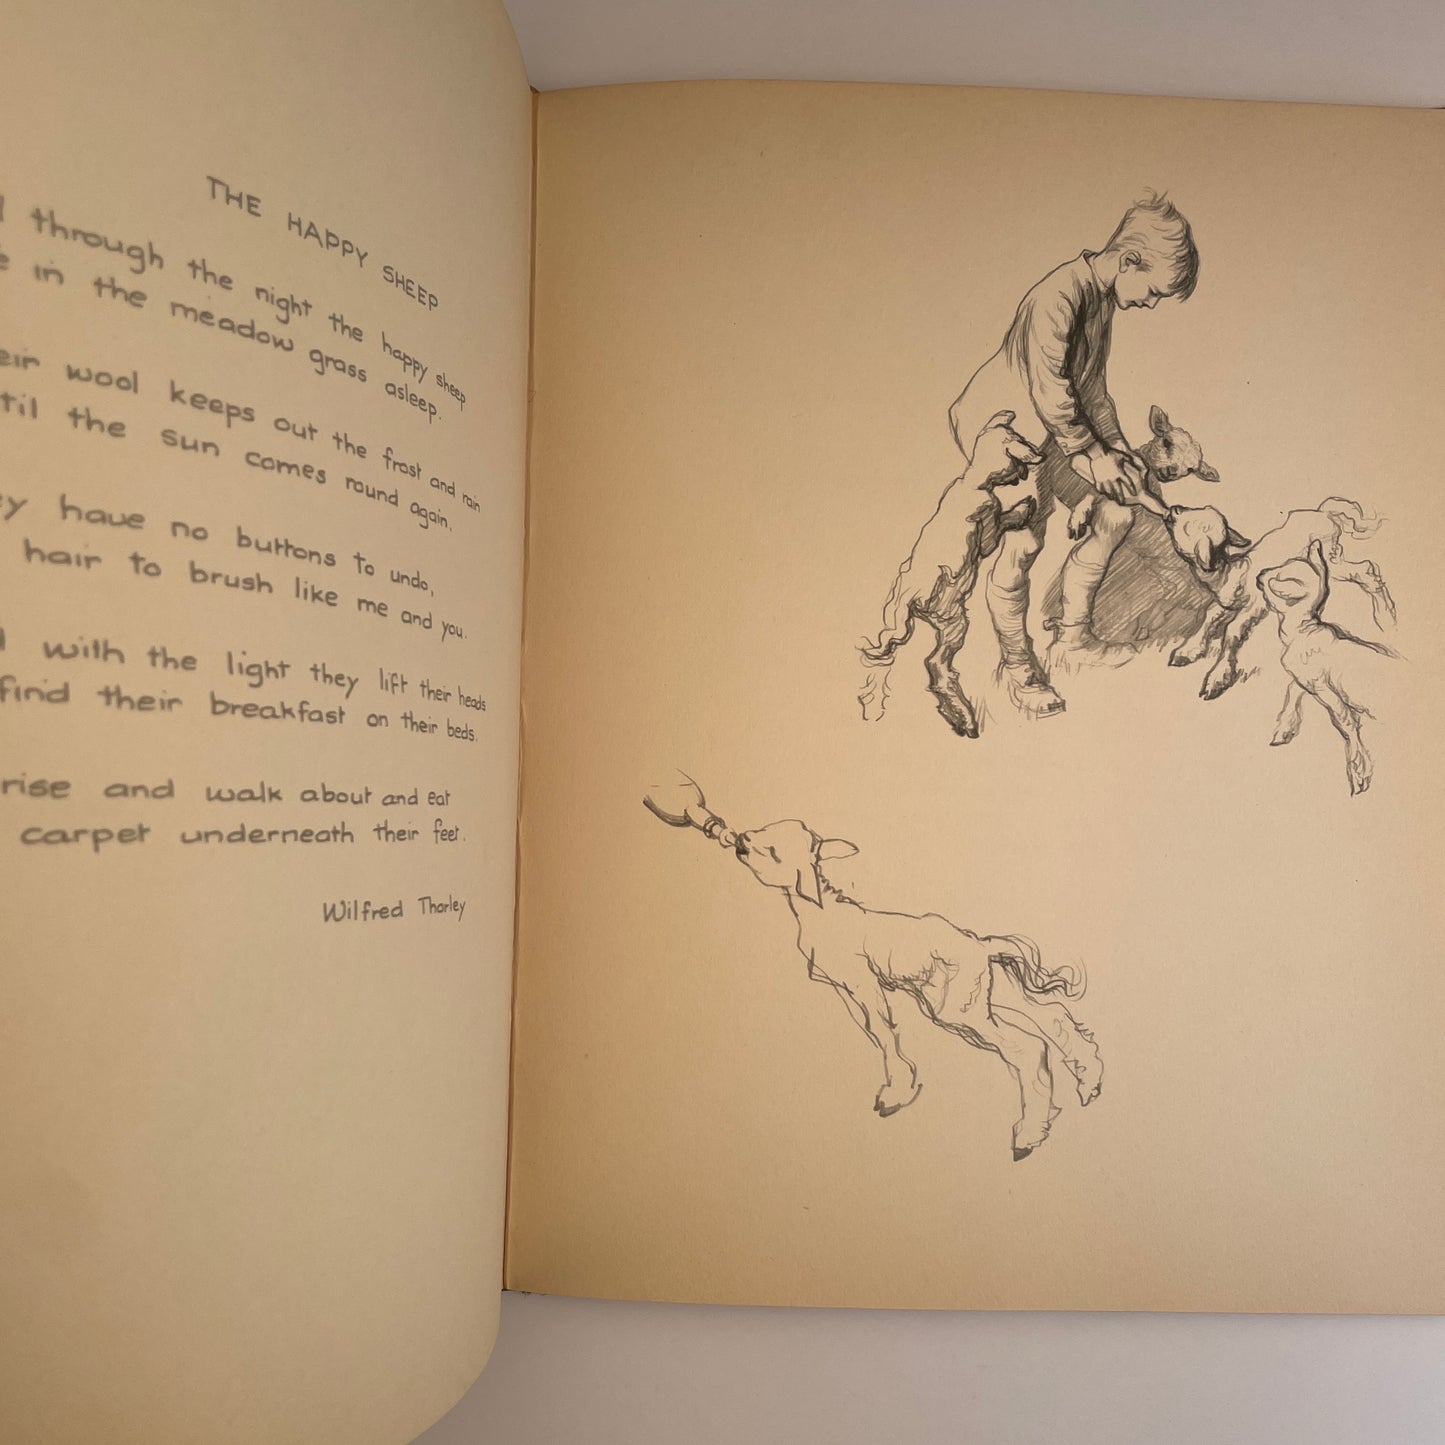 THE HAPPY SHEEP
through the night the happy sheep
in the meadow grass asleep.
wool keeps out the frost and rain
the sun comes round again.
have no buttons to undo,
hair to brush like me and you.
with the light they lift their heads
find their breakfast on their beds.
rise and walk about and eat
carpet underneath their feet.
Wilfred Thorley